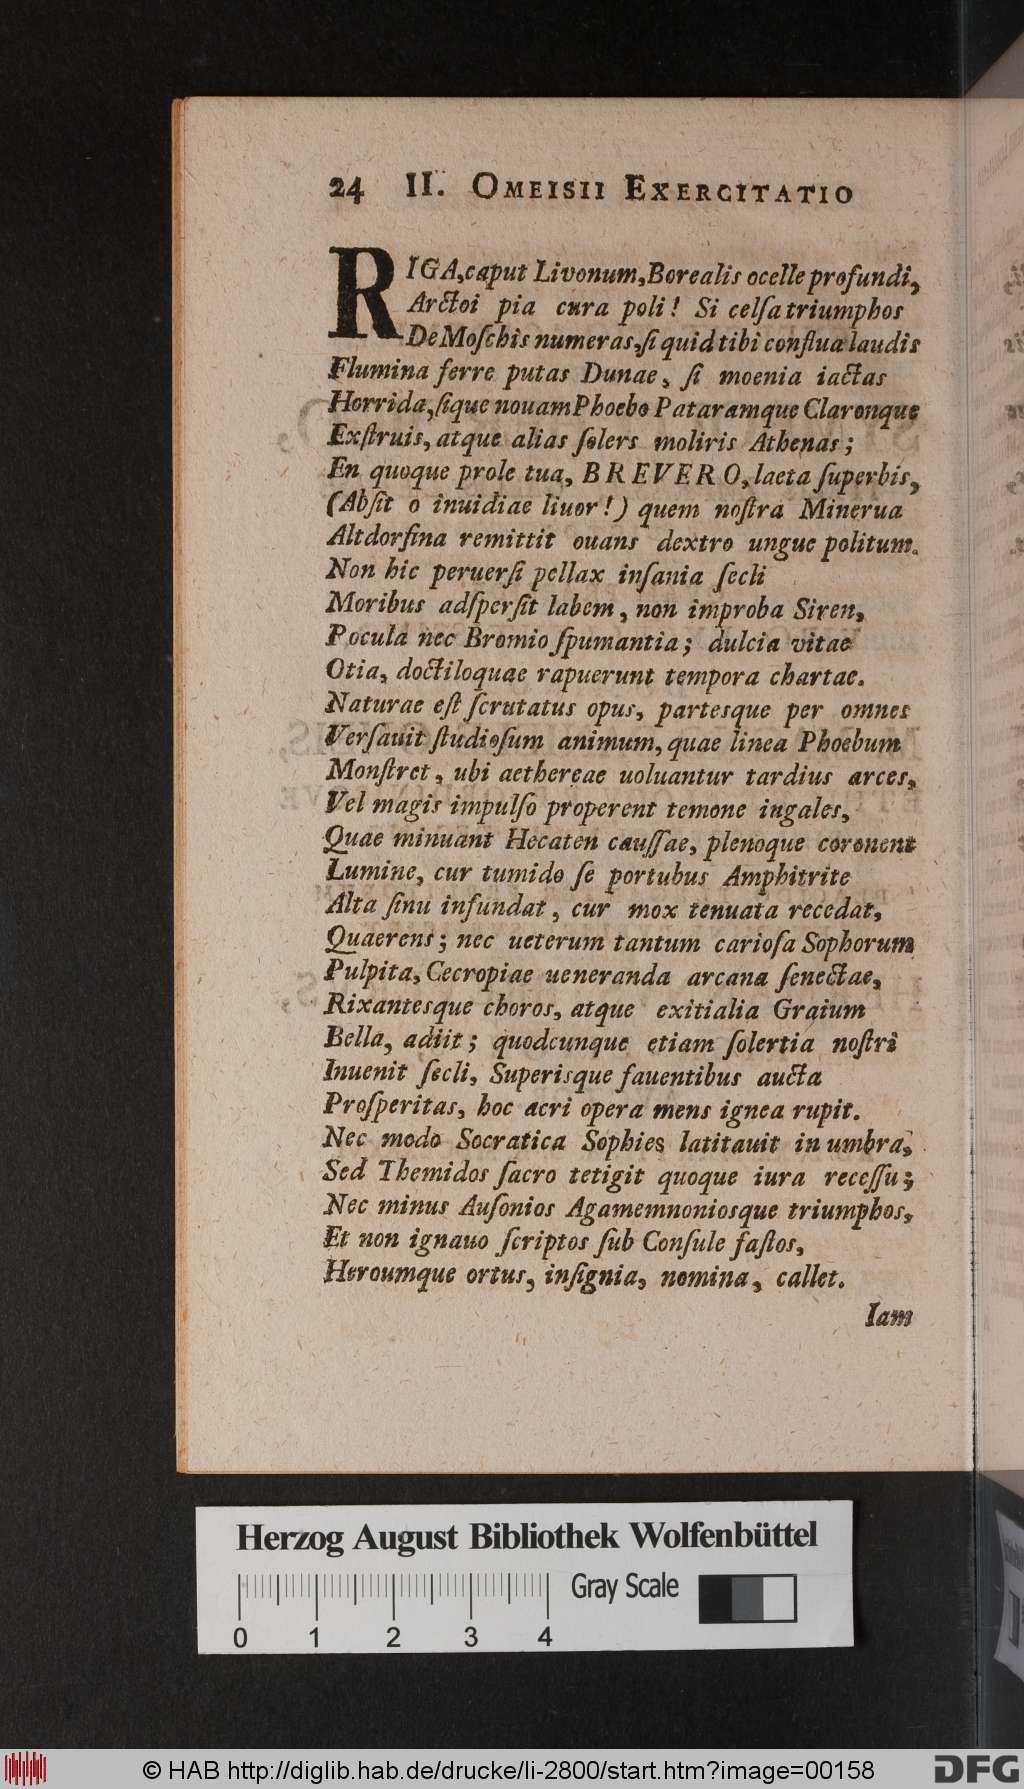 24 II. OMEISII EXERCITATIO
RIGA, caput Livonum, Borealis ocelle profundi,
Arctoi pia cura poli! Si celſa triumphos
De Moſchis numeras, ſi quid tibi confluae laudis
Flumina ferre putas Dunae, ſi moenia iactas
Horrida, ſique nouam Phoebo Pataramque Claronque
Exſtruis, atque alias ſolers moliris Athenas;
En quoque prole tua, BREVERO, laeta ſuperbis,
(Abſit o inuidiae liuor!) quem noſtra Minerua
Altdorfina remittit ouans dextro ungue politum.
Non hic peruerſi pellax inſania ſecli
Moribus adſperſit labem, non improba Siren,
Pocula nec Bromio ſpumantia; dulcia vitae
Otia, doctiloquae rapuerunt tempora chartae.
Naturae eſt ſcrutatus opus, partesque per omnes
Verſauit ſtudioſum animum, quae linea Phoebum
Monſtret, ubi aethereae uoluantur tardius arces,
Vel magis impulſo properent temone iugales,
Quae minuant Hecaten cauſſae, plenoque coronent
Lumine, cur tumido ſe portubus Amphitrite
Alta ſinu infundat, cur mox tenuata recedat,
Quaerens; nec ueterum tantum carioſa Sophorum
Pulpita, Cecropiae ueneranda arcana ſenectae,
Rixantesque choros, atque exitialia Graium
Bella, adiit; quodcunque etiam ſolertia noſtri
Inuenit ſecli, Superisque fauentibus aucta
Proſperitas, hoc acri opera mens ignea rupit.
Nec modo Socratica Sophies latitauit in umbra,
Sed Themidos ſacro tetigit quoque iura receſſu;
Nec minus Auſonios Agamemnoniosque triumphos,
Et non ignauo ſcriptos ſub Conſule faſtos,
Heroumque ortus, inſignia, nomina, callet.
Iam
Herzog August Bibliothek Wolfenbüttel
Gray Scale
0 1 2 3 4
© HAB http://diglib.hab.de/drucke/li-2800/start.htm?image=00158
DFG